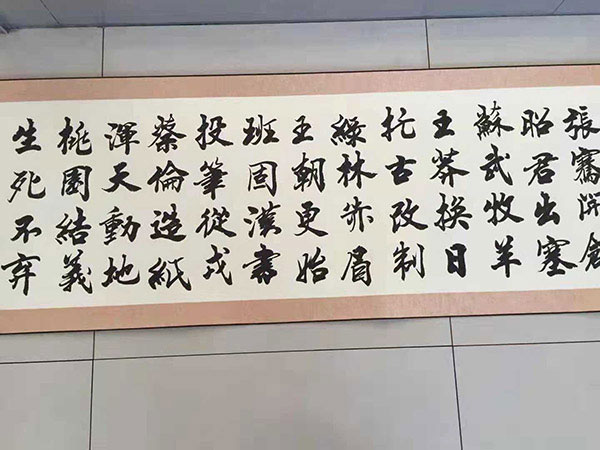 張騫開創
昭君出塞
蘇武牧羊
王莽換日
托古改制
綠林赤眉
王朝更始
班固漢書
投筆從戎
蔡倫造紙
渾天動地
桃園結義
生死不弃